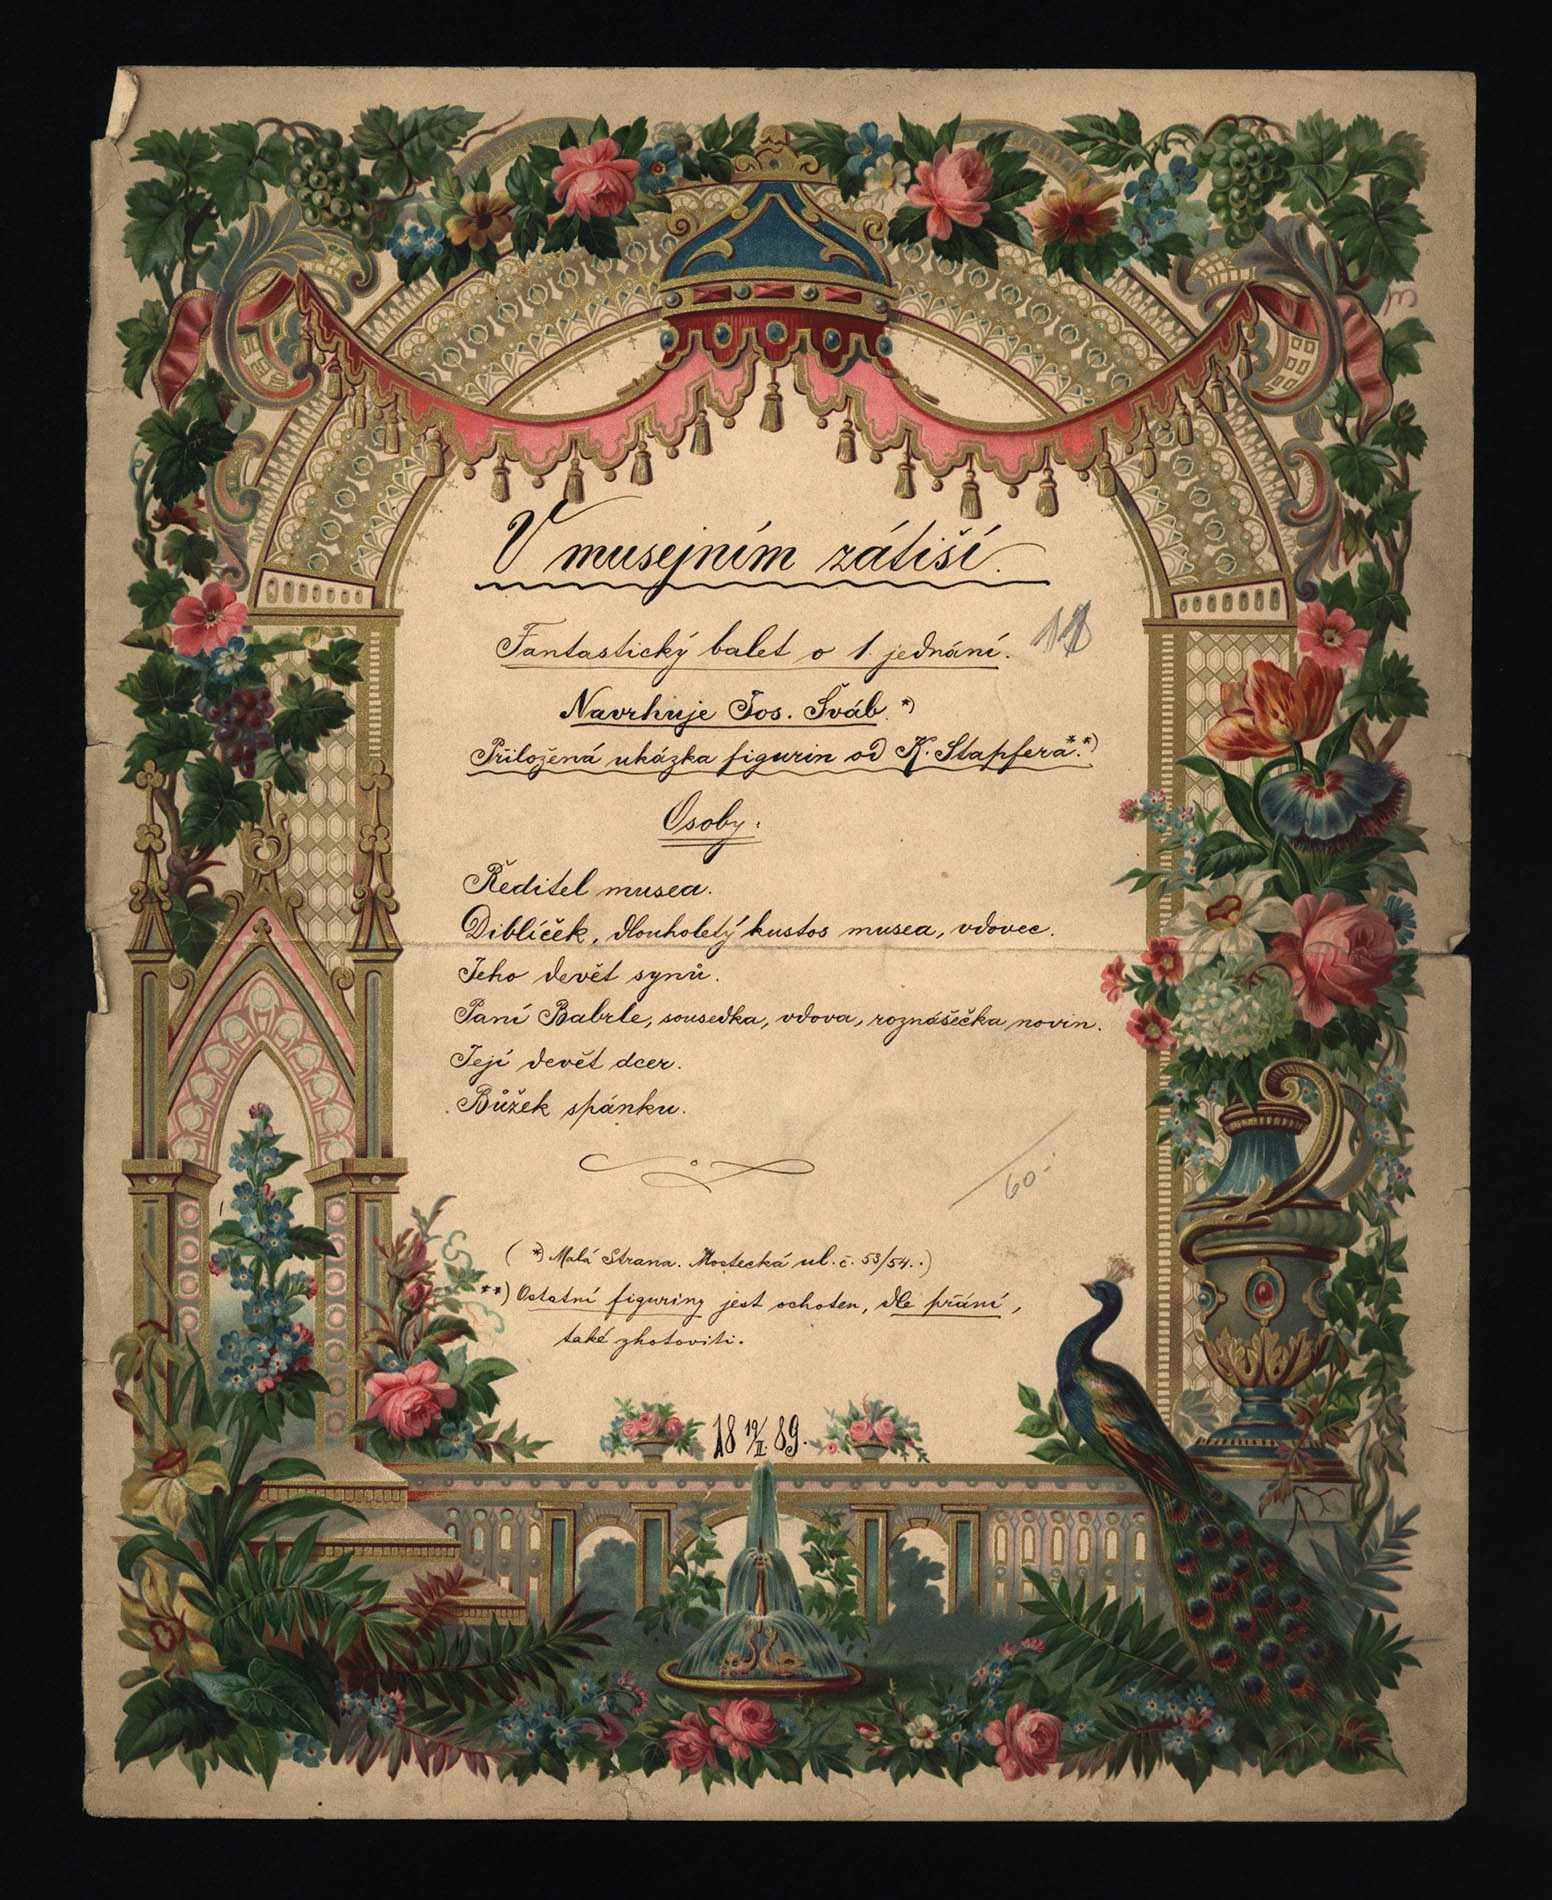 V musejním zátiší.
Fantastický balet o 1. jednání.
Navrhuje Jos. Šváb.*)
Přiložená ukázka figurin od K. Stapfera.**)
Osoby:
Ředitel musea.
Diblíček, dlouholetý kustos musea, vdovec.
Jeho devět synů.
Paní Babrle, sousedka, vdova, roznášečka novin.
Její devět dcer.
Bůžek spánku.
60.-
(*) Malá Strana. Mostecká ul. č. 53/54.)
**) Ostatní figuriny jest ochoten, dle přání,
také zhotoviti.
18 19/II. 89.